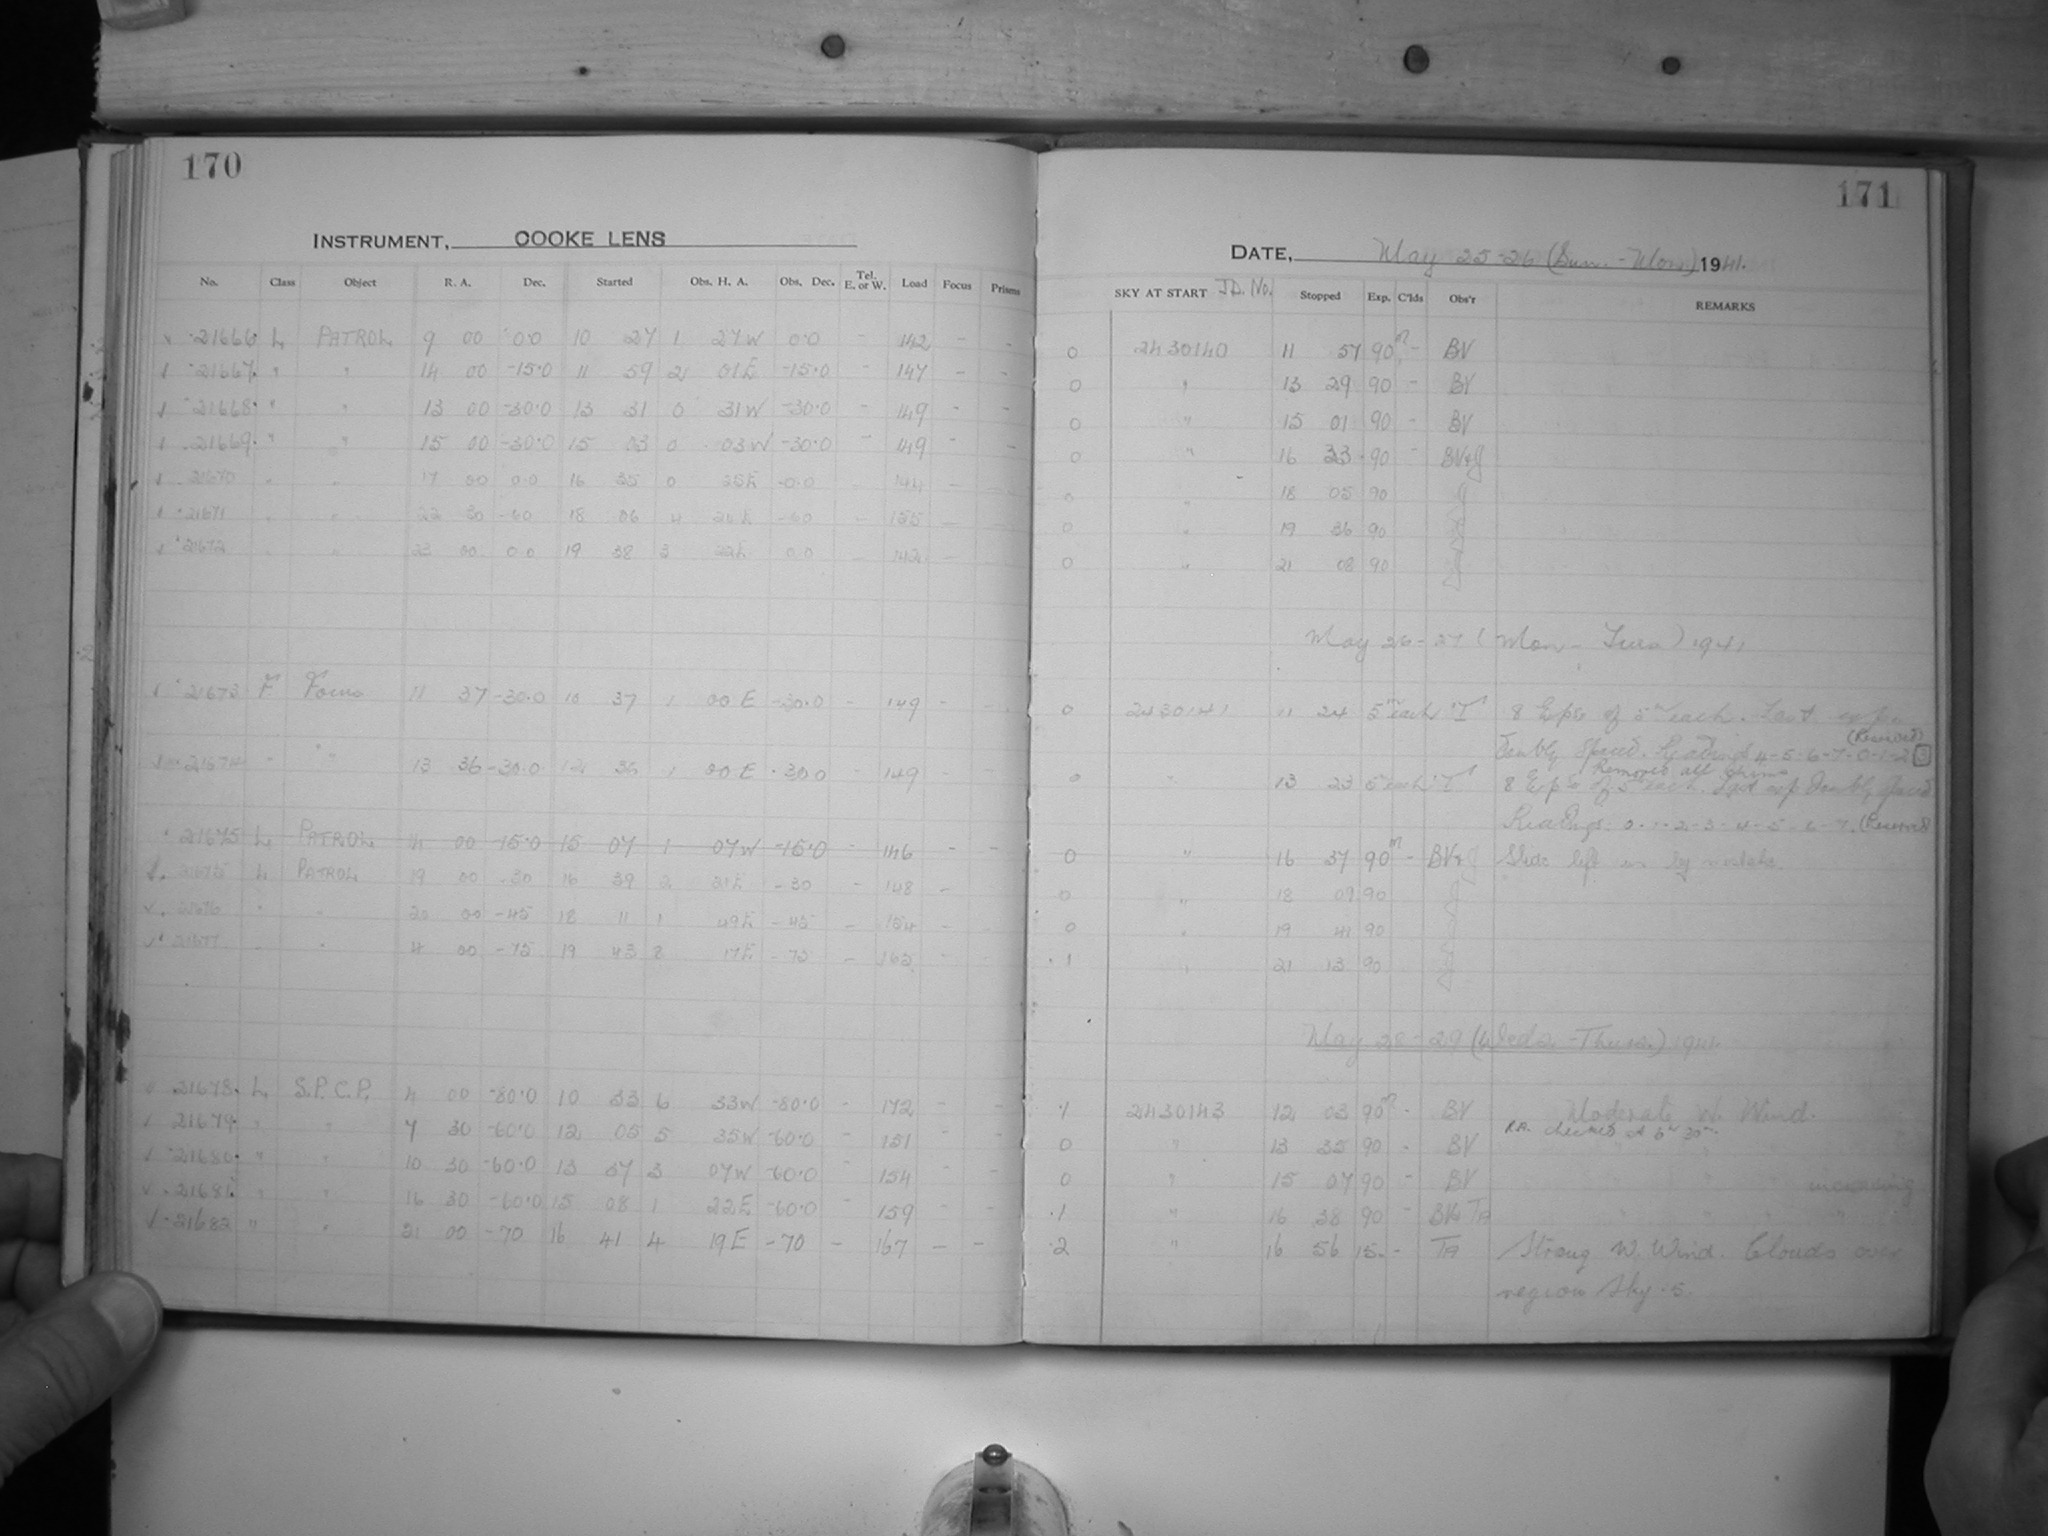 170
INSTRUMENT, COOKE LENS
No. Class Object R. A. Dec. Started Obs. H. A. Obs. Dec. Tel. E. or W. Load Focus Prisms
21666 L PATROL 9 00 0.0 10 27 1 27W 0.0 - 142 - -
21667 " " 14 00 -15.0 11 59 2 01E -15.0 - 147 - -
21668 " " 13 00 -30.0 13 31 0 31W -30.0 - 149 - -
21669 " " 15 00 -30.0 15 03 0 03W -30.0 - 149 - -
21670 " " 17 00 0.0 16 35 0 25E 0.0 - 144 -
21671 " " 22 30 -60 18 06 4 - 155 -
21672 " " 23 00 0.0 19 38 3 22E 0.0 - 142 -
21673 F Focus 11 37 -30.0 10 37 1 00E -30.0 - 149 - -
21674 " " 13 36 -30.0 12 36 1 00E -30.0 - 149 - -
21675 L PATROL 14 00 -15.0 15 07 1 07W -15.0 - 146 - -
21675 L PATROL 19 00 -30 16 39 2 31E -30 - 148 -
21676 " " 20 00 -45 18 11 1 49E -45 - 154 -
21677 " " 4 00 -75 19 43 8 17E -75 - 162 -
21678 L S.P.C.P. 4 00 -80.0 10 33 6 33W -80.0 - 172 - -
21679 " " 7 30 -60.0 12 05 5 35W -60.0 - 151 - -
21680 " " 10 30 -60.0 13 37 3 07W -60.0 - 154 - -
21681 " " 16 30 -60.0 15 08 1 22E -60.0 - 159 - -
21682 " " 21 00 -70 16 41 4 19E -70 - 167 - -
171
DATE, May 25-26 (Sun.-Mon.) 1941.
SKY AT START J.D. No. Stopped Exp. C'lds Obs'r REMARKS
0 2430140 11 57 90m - BV
0 " 13 29 90 - BV
0 " 15 01 90 - BV
0 " 16 33 90 - BV&J
0 " 18 05 90
0 " 19 36 90
0 " 21 08 90
May 26-27 (Mon-Tues) 1941
0 2430141 11 24 5m each T 8 Exps of 5m each. Last exp.
doubly spaced. Readings 4-5-6-7-0-1-2-3 (Reserved)
0 " 13 23 5m each T 8 Exps of 5m each. Last exp doubly spaced
Readings 0-1-2-3-4-5-6-7. (Reserved)
0 " 16 37 90m - BV&J Slide left in by mistake.
0 " 18 09 90
0 " 19 41 90
.1 " 21 13 90
May 28-29 (Weds.-Thurs.) 1941
.1 2430143 12 03 90m - BV Moderate W. Wind.
R.A. checked at 5h 30m.
0 " 13 35 90 - BV
0 " 15 07 90 - BV " " " increasing
.1 " 16 38 90 - BV& TA " " " "
.2 " 16 56 15 - TA Strong W. Wind. Clouds over
region Sky .5.